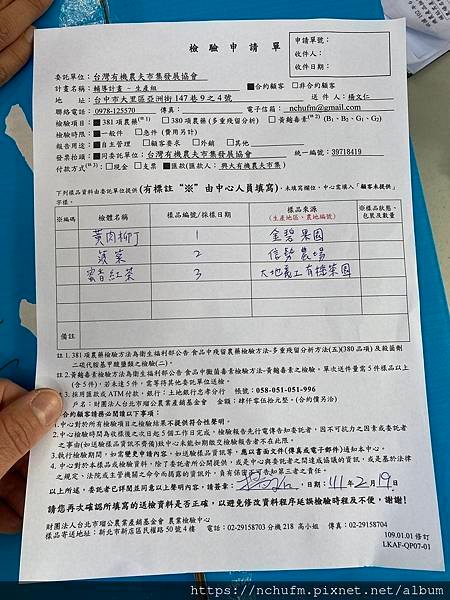 檢驗申請單
申請單號：
收件人：
收件日期：
委託單位：台灣有機農夫市集發展協會
■合約顧客 □非合約顧客
計畫名稱：輔導計畫－生產組
地 址：台中市大里區亞洲街 147 巷 9 之 4 號
送 件 人：楊文仁
聯絡電話：0978-125570 傳真： 電子信箱：nchufm@gmail.com
檢驗項目：■381 項農藥(註1) □380 項農藥(多重殘留分析) □黃麴毒素(註2) (B1、B2、G1、G2)
檢驗時限：■一般件 □急件 (費用另計)
報告用途：■自主管理 □顧客要求 □外銷 □其他
發票抬頭：■同委託單位：台灣有機農夫市集發展協會 統一編號：39718419
付款方式(註3)：□現金 □支票 ■匯款(匯款人：興大有機農夫市集)
下列樣品資料由委託單位提供(有標註“※”由中心人員填寫)，未填寫欄位，中心需填入「顧客未提供」
字樣。
※編碼 檢體名稱 樣品編號/採樣日期 樣品來源 (生產地區、農地編號) ※樣品狀態、包裝及數量
黃肉柳丁 1 金碧果園
菠菜 2 信勢農場
蜜香紅茶 3 大地義工有機茶園
備註
註 1. 381 項農藥檢驗方法為衛生福利部公告 食品中殘留農藥檢驗方法-多重殘留分析方法(五)(380 品項) 及殺菌劑
二硫代胺基甲酸鹽類之檢驗(二)。
註 2. 黃麴毒素檢驗方法為衛生福利部公告 食品中黴菌毒素檢驗方法-黃麴毒素之檢驗。單次送件量需 5 件樣品以上
(含 5 件)，若未達 5 件，需等待其他委託單位送檢。
註 3. 採用匯款或 ATM 付款，銀行：土地銀行忠孝分行 帳號：058-051-051-996
戶名：財團法人台北市瑠公農業產銷基金會 金額：肆仟零伍拾元整。(合約價另洽)
合約顧客請務必閱讀以下事項：
1. 中心對於所有檢驗項目之檢驗結果不提供符合性聲明。
2. 中心檢驗時間為收樣後之次日起 5 個工作日完成，檢驗報告先行電傳告知委託者，因不可抗力之因素或委託者
之事由(如送驗樣品資訊不齊備)致中心未能如期繳交檢驗報告者不在此限。
3. 執行檢驗期間，如需變更申請內容，如送驗樣品資訊等，應以書面文件(傳真或電子郵件)通知本中心。
4. 中心對於本中心樣品或檢驗資料，除了委託者所公開提供，或是中心與委託者之間達成協議的資訊，或是基於法律
之規定、法院或主管機關之命令而揭露的資訊外，負有保密而不告知第三者之責任。
以上所述，委託者已詳閱並同意以上聲明內容，請簽章： 日期：111 年 2 月 19 日
請您再次確認所填寫的送檢資料是否正確，以避免修改資料程序延誤檢驗時程及不便，謝謝！
財團法人台北市瑠公農業產銷基金會 農業檢驗中心
樣品寄送地址：新北市新店區民權路 50 號 4 樓 電話：02-29158703 分機 218 高小姐 傳真：02-29158704
109.01.01 修訂
LKAF-QP07-01
https://nchufm.pixnet.net/album